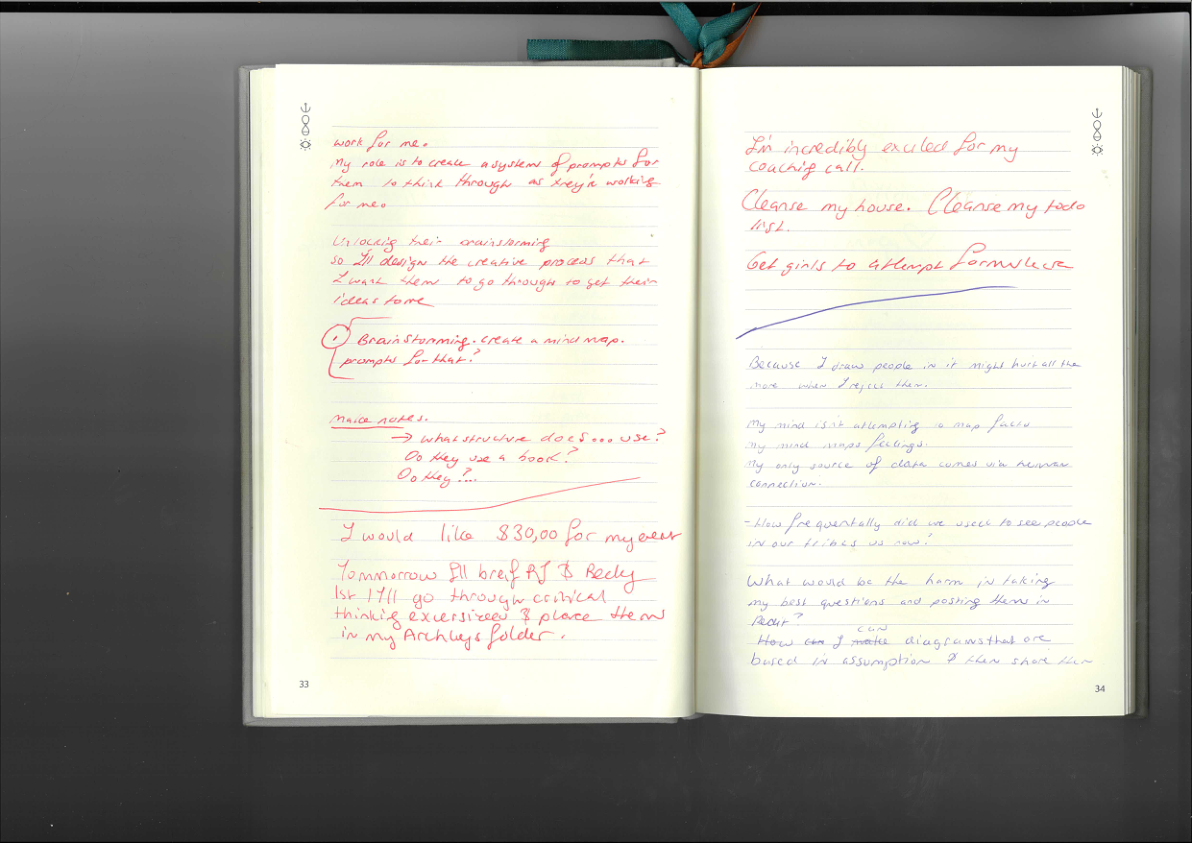 work for me.
My role is to create a system of prompts for
them to think through as they're working
for me.
Unlocking their brainstorming
so I'll design the creative process that
I want them to go through to get their
ideas to me
Brainstorming. create a mind map.
prompts for that?
make notes.
→ what structure does... use?
Do they use a book?
Do they?...
I would like $30,00 for my event
Tommorrow I'll breif RJ & Becky
1st I'll go through critical
thinking excersizes & place them
in my Archleys folder.
33
I'm incredibly excited for my
coaching call.
Cleanse my house. Cleanse my todo
list.
Get girls to attempt
Because I draw people in it might hurt all the
more when I reject them.
My mind isn't attempting to map facts
my mind maps feelings.
My only source of data comes via human
connection.
- How frequentally did we used to see people
in our tribes vs now?
What would be the harm in taking
my best questions and posting them in
How can I make can diagrams that are
based in assumption & then share them
34